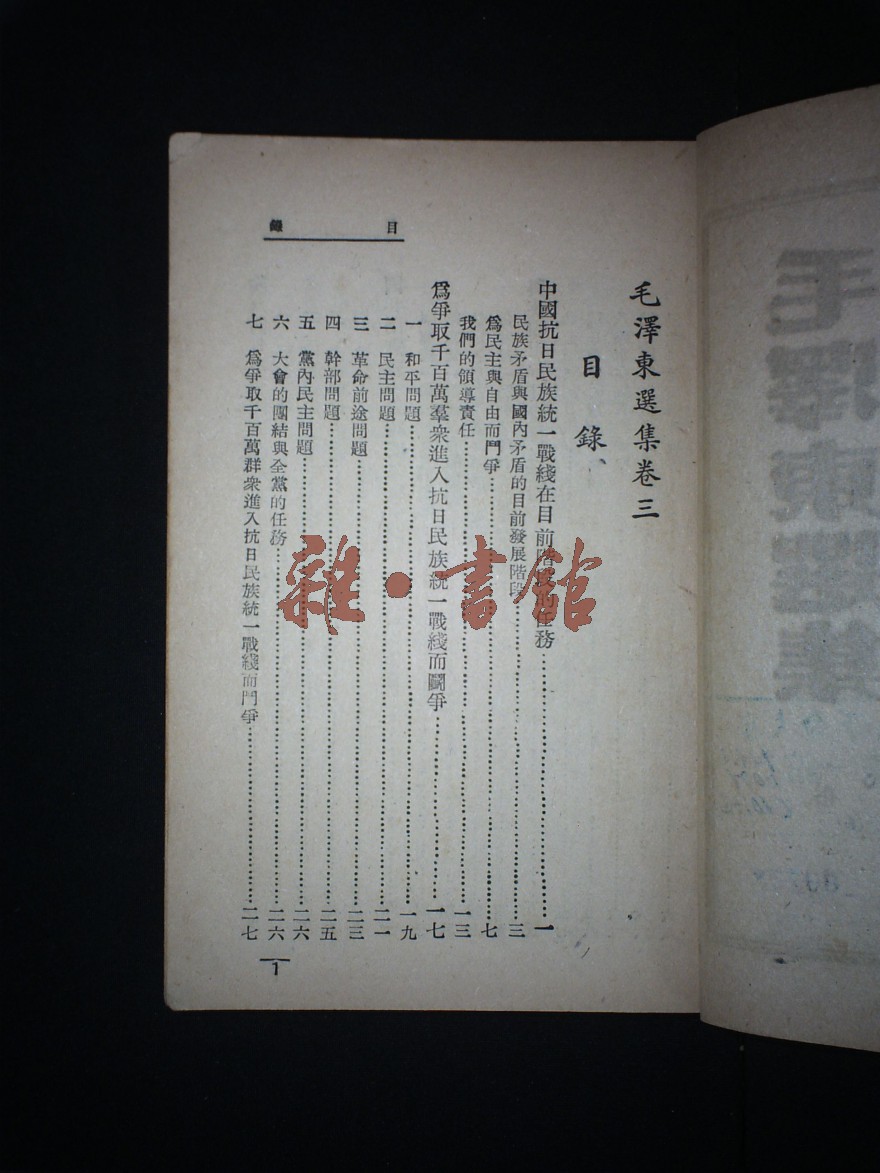 目錄
毛澤東選集卷三
目錄
中國抗日民族統一戰綫在目前階段的任務……一
民族矛盾與國內矛盾的目前發展階段……三
爲民主與自由而鬥爭……七
我們的領導責任……一三
爲爭取千百萬羣衆進入抗日民族統一戰綫而鬭爭……一七
一 和平問題……一九
二 民主問題……二一
三 革命前途問題……二三
四 幹部問題……二五
五 黨內民主問題……二六
六 大會的團結與全黨的任務……二六
七 爲爭取千百萬群衆進入抗日民族統一戰綫而鬥爭……二七
1
雜·書館
毛澤東選集